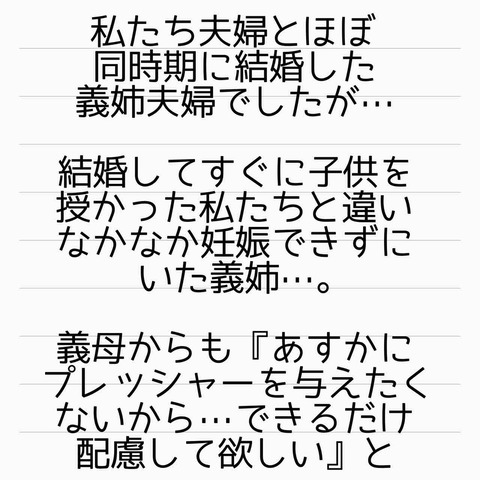 私たち夫婦とほぼ
同時期に結婚した
義姉夫婦でしたが…
結婚してすぐに子供を
授かった私たちと違い
なかなか妊娠できずに
いた義姉…。
義母からも『あすかに
プレッシャーを与えたく
ないから…できるだけ
配慮して欲しい』と